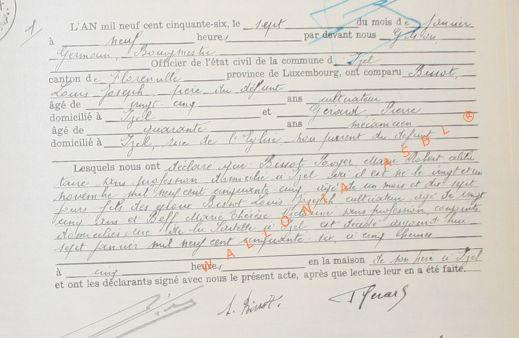 1
L'AN mil neuf cent cinquante-six, le sept du mois de janvier
à neuf heures par devant nous
Germain, Bourgmestre
Officier de l'état civil de la commune d'Izel
canton de Florenville province de Luxembourg, ont comparu Bissot,
Louis Joseph, père du défunt
âgé de vingt cinq ans cultivateur
domicilié à Izel et Gérard, Pierre
âgé de quarante ans mécanicien
domicilié à Izel, rue de l'Eglise, non parent du défunt
Lesquels nous ont déclaré que Bissot Roger Marie Robert céliba
taire sans profession domicilié à Izel né le vingt et un
novembre mil neuf cent cinquante cinq âgé de un mois et dix sept
jours fils des époux Bissot Louis Joseph cultivateur âgé de vingt
cinq ans et Marie Thérèse sans profession conjoints
domiciliés rue de la à Izel est décédé
sept janvier mil neuf cent cinquante six à cinq heures
à cinq heures en la maison de son père à Izel
et ont les déclarants signé avec nous le présent acte, après que lecture leur en a été faite.
WALLONIA ASBL ®
L. Bissot. P Gerard